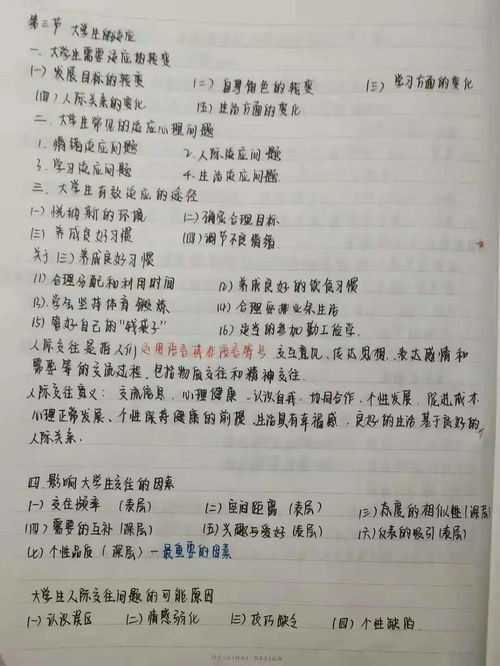 第三节 大学生的适应
一、大学生需要适应的转变
(一) 发展目标的转变 (二) 自身角色的转变 (三) 学习方面的变化
(四) 人际关系的变化 (五) 生活方面的变化
二、大学生常见的适应心理问题
1. 情绪适应问题 2. 人际适应问题
3. 学习适应问题 4. 生活适应问题
三、大学生有效适应的途径
(一) 悦纳新的环境 (二) 确定合理目标
(三) 养成良好习惯 (四) 调节不良情绪
关于 (三) 养成良好习惯
(1) 合理分配和利用时间 (2) 养成良好的饮食习惯
(3) 学会坚持体育锻炼 (4) 合理安排业余生活
(5) 管好自己的"钱袋子" (6) 适当的参加勤工俭学
人际交往是指人们运用语言或非语言符号交互意见、传达思想、表达感情和
需要等的交流过程，包括物质交往和精神交往。
人际交往意义：交流信息、心理健康、认识自我、协同合作、个性发展、促进成才、
心理正常发展、个性保持健康的前提、生活具有幸福感，良好的生活基于良好的
人际关系.
四、影响大学生交往的因素
(一) 交往频率 (表层) (二) 空间距离 (表层) (三) 态度的相似性 (深层)
(四) 需要的互补 (深层) (五) 兴趣与爱好 (表层) (六) 仪表的吸引 (表层)
(七) 个性品质 (深层) — 最重要的因素
大学生人际交往问题的可能原因
(一) 认识误区 (二) 情感弱化 (三) 技巧缺乏 (四) 个性缺陷.
ORIGINAL DESIGN